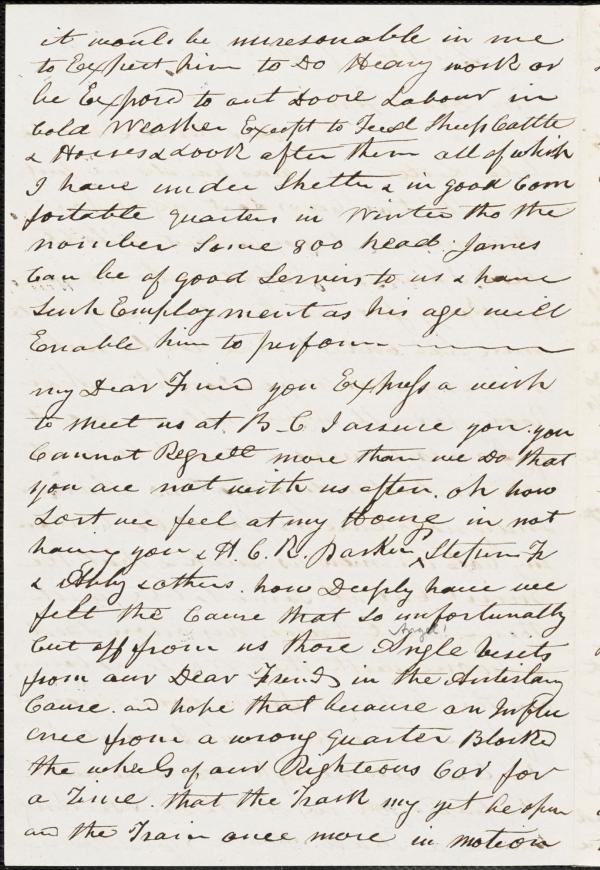 it would be unresonable in me
to Expect him to Do Heavy work or
be Expos'd to out Doore Labour in
Cold Weather Except to Feed Sheep Cattle
& Horses & Look after them all of which
I have under Shelter & in good Com
fortable quarters in Winter tho the
number Some 800 head. James
Can be of good Servis to us & have
Such Employment as his age will
Enable him to perform
my Dear Frind you Express a wish
to meet us at B-C I assure you. you
Cannot Regrett more than we Do that
you are not with us often. oh how
Lost we feel at my House in not
having you & H. C. W. Parker P, Stephen F
& Abby & others. how Deeply have we
felt the Cause that So unfortunally
Cut off from us those Angle visits
Angel
from our Dear Frinds in the Antislavy
Cause. and hope that because an Influ
ence from a wrong quarter Blocked
the wheels of our Righteous Car for
a Time. that the Track my yet be open
and the Train once more in motion